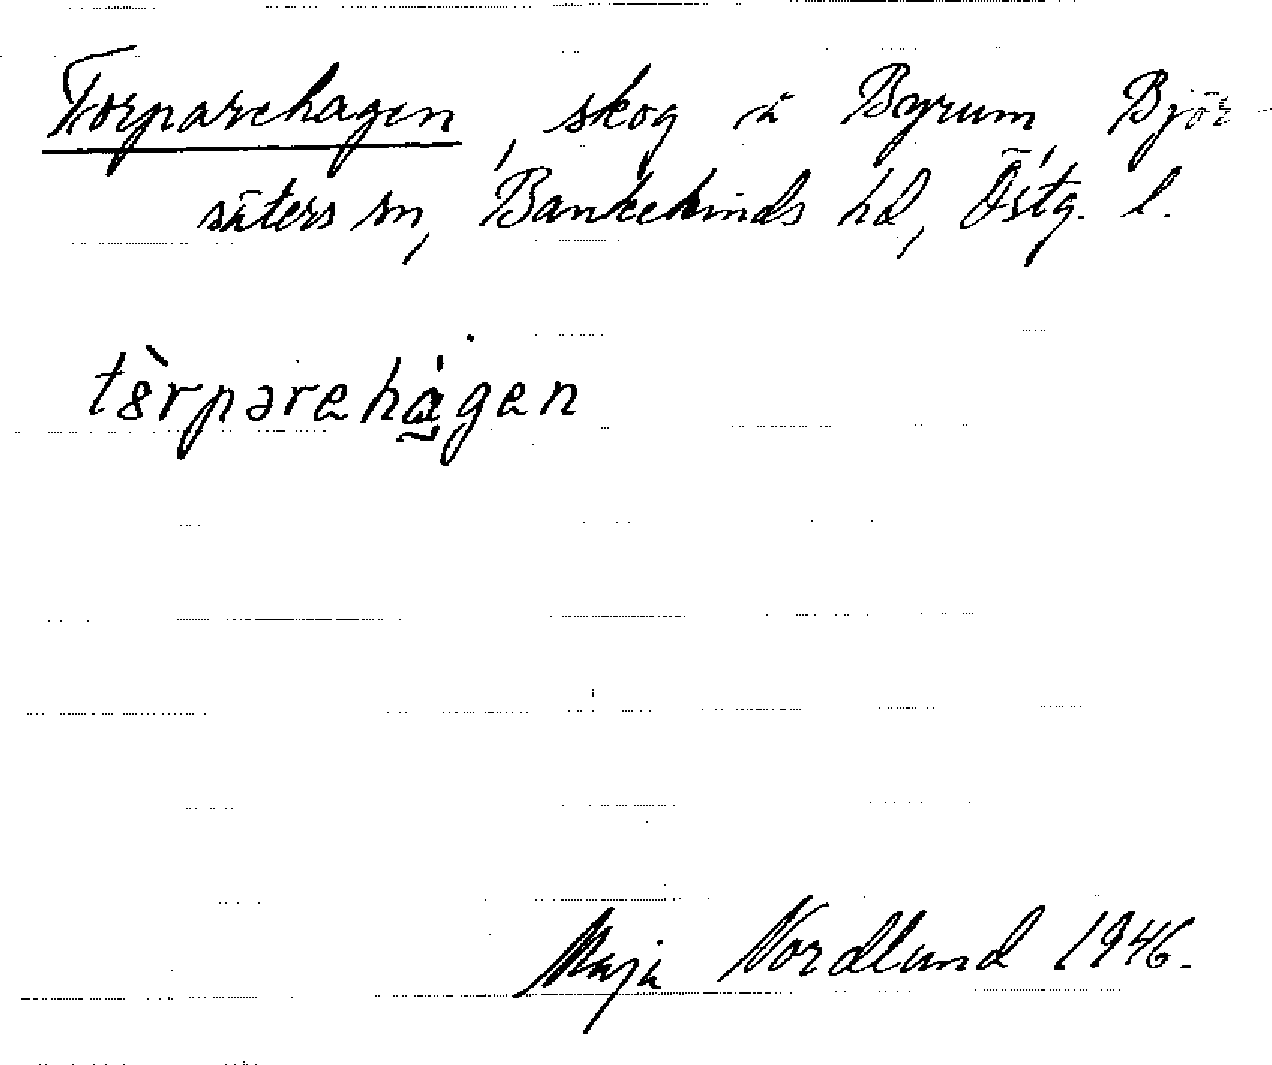 Torparehagen, skog å Byrum Björ-
säters sn, Bankekinds hd, Östg. l.
tòrparehágen
Maja Nordlund 1946.